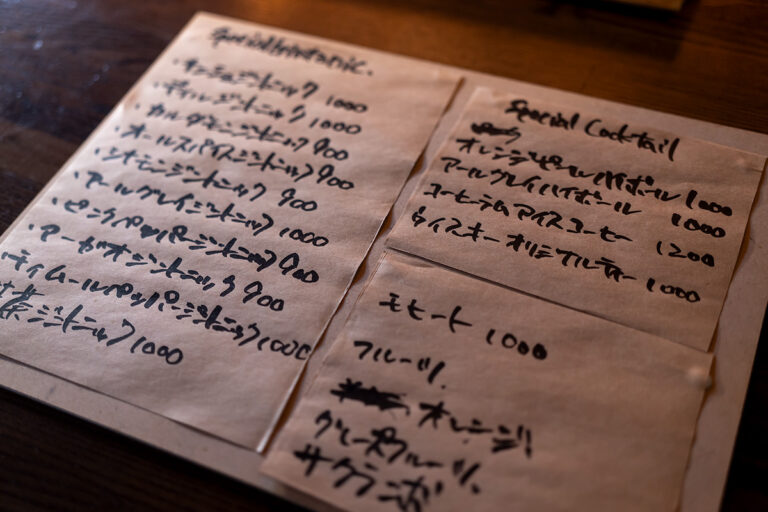 Special Gin tonic.
・キンシュジントニック 1000
・ディルジントニック 1000
・カルダモンジントニック 900
・オールスパイスジントニック 900
・シナモンジントニック 900
・アールグレイジントニック 1000
・ピンクペッパージントニック 900
・アーモンドジントニック 900
・ティムールペッパージントニック 1000
茶ジントニック 1000
Special Cocktail
オレンジピールハイボール 1000
アールグレイハイボール 1000
コーヒーラムアイスコーヒー 1200
ウイスキーオリジナルティー 1000
モヒート 1000
フルーツ.
オレンジ
グレープフルーツ.
サクランボ